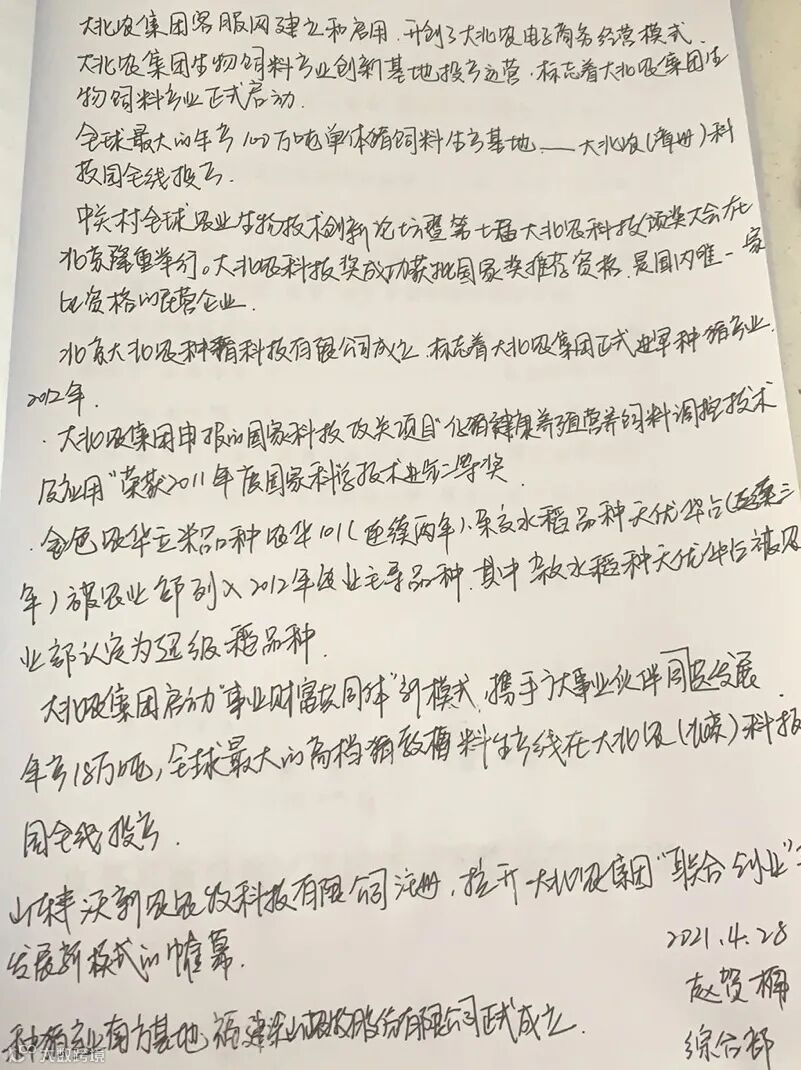 大北农集团客服网建立和启用,开创了大北农电子商务经营模式.
大北农集团生物饲料产业创新基地投产运营.标志着大北农集团生
物饲料产业正式启动.
全球最大的年产100万吨单体猪饲料生产基地——大北农(漳州)科
技园全线投产.
中关村全球农业生物技术创新论坛暨第七届大北农科技颁奖大会在
北京隆重举行。大北农科技奖成功获批国家奖推荐资格.是国内唯一一家
比资格的民营企业.
北京大北农种猪科技有限公司成立.标志着大北农集团正式进军种猪产业.
2012年.
·大北农集团申报的国家科技攻关项目"仔猪健康养殖营养饲料调控技术
及应用"荣获2011年度国家科学技术进步二等奖.
·金色农华玉米品种农华101(连续两年)、杂交水稻品种天优华占(连续三
年)被农业部列入2012年农业主导品种.其中杂交水稻种天优华占被农
业部认定为超级稻品种.
大北农集团启动"事业财富共同体"新模式,携手广大事业伙伴同创发展
年产18万吨,全球最大的高档猪教槽料生产线在大北农(北京)科技
园全线投产.
山东丰沃新农农牧科技有限公司注册,拉开大北农集团"联合创业"
发展新模式的帷幕.
种猪产业南方基地 福建 农牧股份有限公司正式成立.
2021.4.28
赵贺楠
综合部
大数跨境